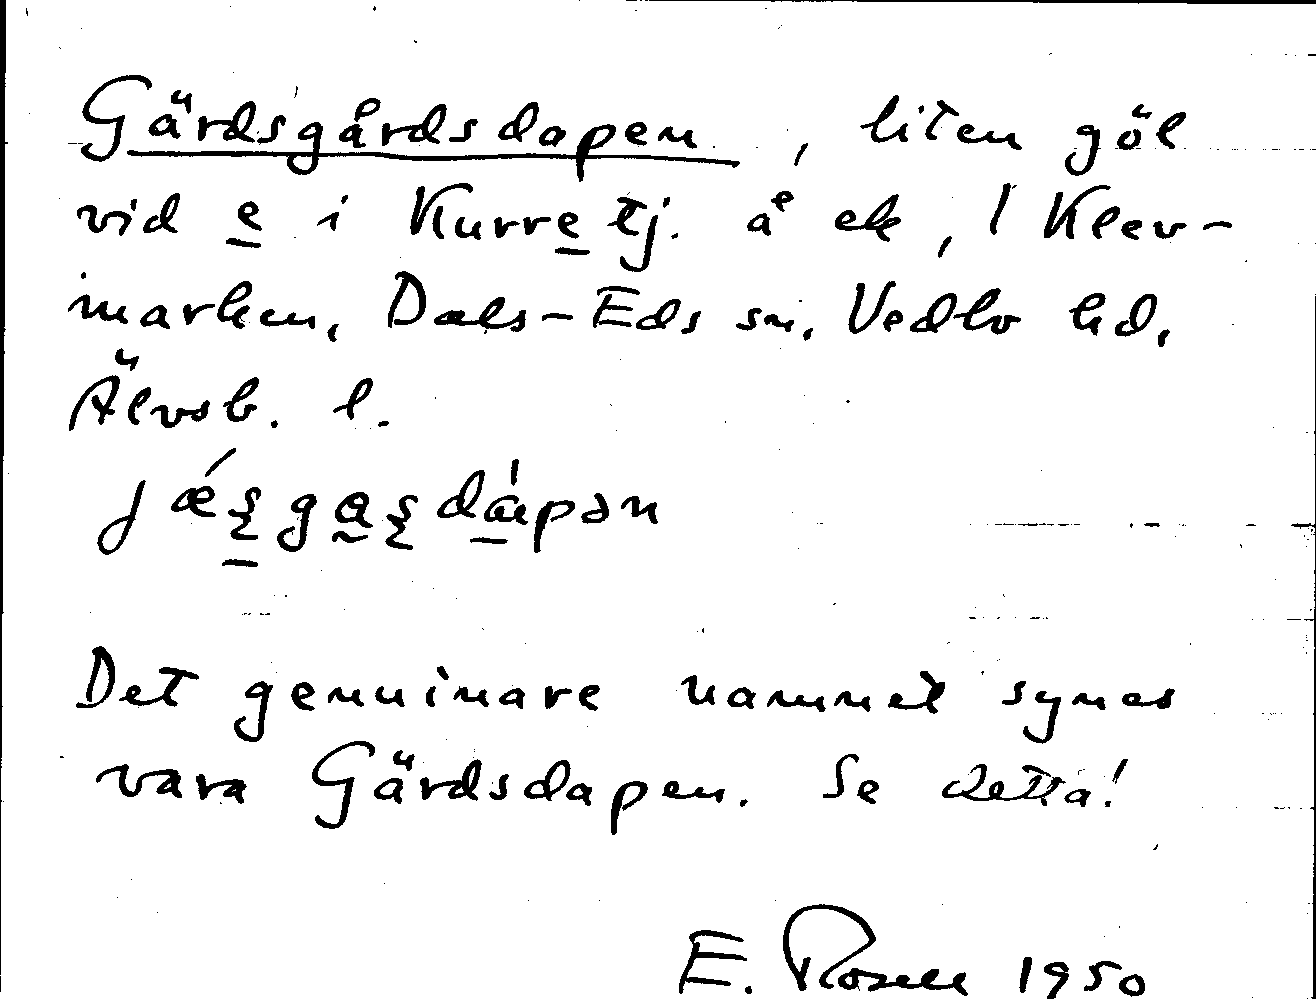 Gärdsgårdsdapen, liten göl
vid e i Kurre tj. å ek, 1 Klev-
marken, Dals-Eds sn. Vedbo hd,
Älvsb. l.
Det genuinare namnet synes
vara Gärdsdapen. Se detta!
E. Rosell 1950